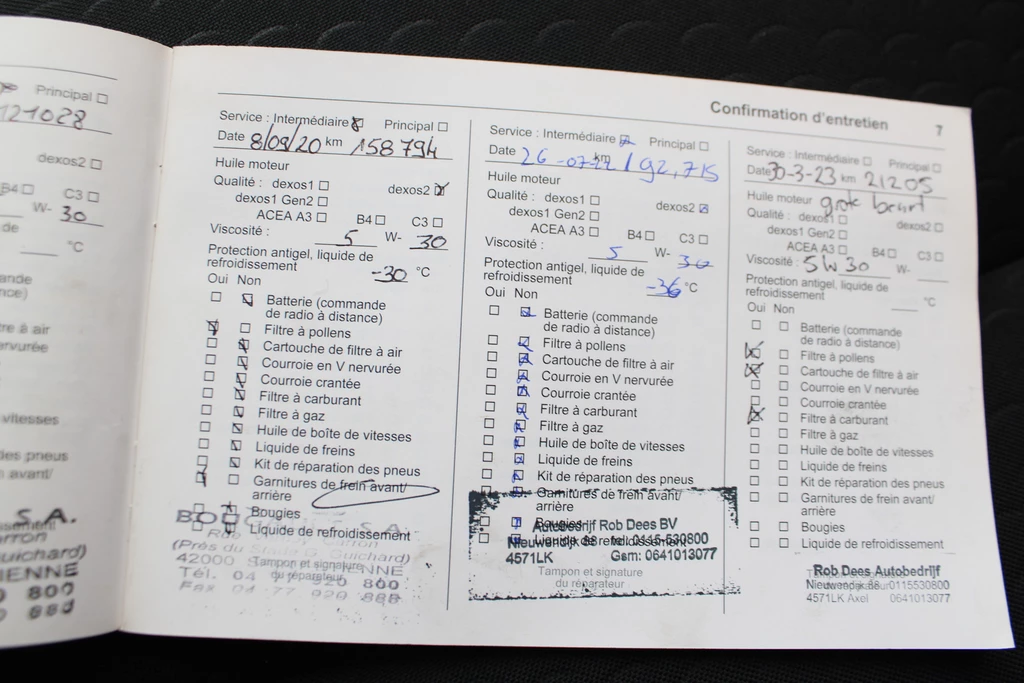 Principal
121028
dexos2
B4 C3
W- 30
°C
S.A.
ENNE
800
Confirmation d'entretien 7
Service : Intermédiaire Principal
Date 8/09/20 km 158794
Huile moteur
Qualité : dexos1 dexos2
dexos1 Gen2
ACEA A3 B4 C3
Viscosité : 5 W- 30
Protection antigel, liquide de
refroidissement -30 °C
Oui Non
Batterie (commande
de radio à distance)
Filtre à pollens
Cartouche de filtre à air
Courroie en V nervurée
Courroie crantée
Filtre à carburant
Filtre à gaz
Huile de boîte de vitesses
Liquide de freins
Kit de réparation des pneus
Garnitures de frein avant/
arrière
Bougies
Liquide de refroidissement
S.A.
(Près du Guichard)
42000 Tampon et signature
du réparateur
Service : Intermédiaire Principal
Date 26-07-22 km 192,715
Huile moteur
Qualité : dexos1 dexos2
dexos1 Gen2
ACEA A3 B4 C3
Viscosité : 5 W- 30
Protection antigel, liquide de
refroidissement -36 °C
Oui Non
Batterie (commande
de radio à distance)
Filtre à pollens
Cartouche de filtre à air
Courroie en V nervurée
Courroie crantée
Filtre à carburant
Filtre à gaz
Huile de boîte de vitesses
Liquide de freins
Kit de réparation des pneus
Garnitures de frein avant/
arrière
Bougies
Liquide de refroidissement
Autobedrijf Rob Dees BV
Nieuwendijk 88 tel: 0115-530800
4571LK Gsm: 0641013077
Tampon et signature
du réparateur
Service : Intermédiaire Principal
Date 30-3-23 km 21205
Huile moteur grote beurt
Qualité : dexos1 dexos2
dexos1 Gen2
ACEA A3 B4 C3
Viscosité : 5W30 W-
Protection antigel, liquide de
refroidissement °C
Oui Non
Batterie (commande
de radio à distance)
Filtre à pollens
Cartouche de filtre à air
Courroie en V nervurée
Courroie crantée
Filtre à carburant
Filtre à gaz
Huile de boîte de vitesses
Liquide de freins
Kit de réparation des pneus
Garnitures de frein avant/
arrière
Bougies
Liquide de refroidissement
Rob Dees Autobedrijf
Nieuwendijk 88 0115530800
4571LK Axel 0641013077